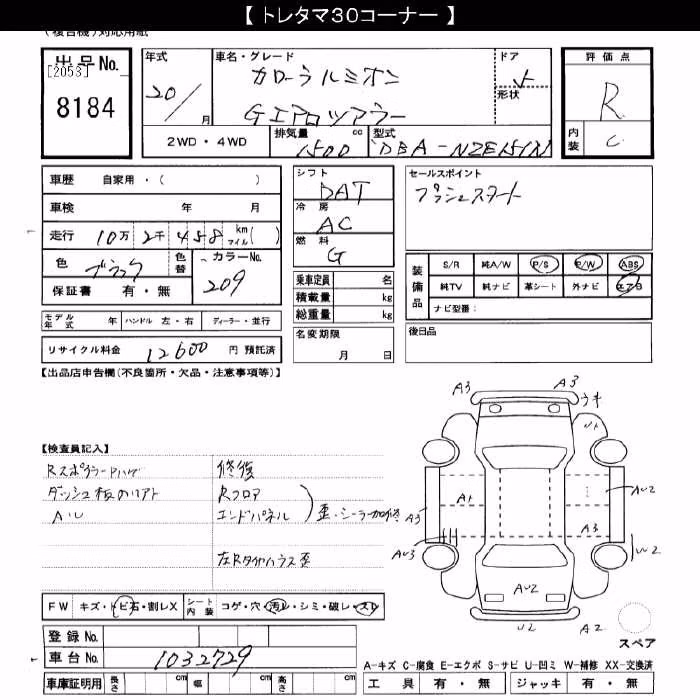 【 トレタマ30コーナー 】
(複合機)対応用紙
出品No.
[2053]
8184
年式
20/
月
車名・グレード
カローラルミオン
Gエアロツアラー
ドア
5
形状
評価点
R
内装
C
2WD・4WD
排気量
1500
cc
型式
DBA-NZE151N
車歴 自家用・( )
車検 年 月
走行 10万2千458 km マイル( )
色 ブラック
色替
カラーNo.
209
保証書 有・無
モデル年式 年 ハンドル 左・右 ディーラー・並行
リサイクル料金 12600 円 預託済
シフト
DAT
冷房
AC
燃料
G
乗車定員 名
積載量 kg
総重量 kg
名変期限
月 日
セールスポイント
プッシュスタート
装備品
S/R 純A/W P/S P/W ABS
純TV 純ナビ 革シート 外ナビ エアB
ナビ型番:
後日品
【出品店申告欄(不良箇所・欠品・注意事項等)】
【検査員記入】
Rスポイラー
ダッシュ板
修復
Rフロア
エンドパネル
歪・シーラー加修
左Rタイヤハウス歪
A3
A3
ウキ
U1
A1
AU2
A3
A3
AU3
W2
AU2
U2
A2
スペア
FW キズ・トビ石・割レX シート内装 コゲ・穴・汚レ・シミ・破レ・スレ
登録No.
車台No. 1032729
車庫証明用 長さ cm 幅 cm 高さ cm
A-キズ C-腐食 E-エクボ S-サビ U-凹ミ W-補修 XX-交換済
工具 有・無 ジャッキ 有・無